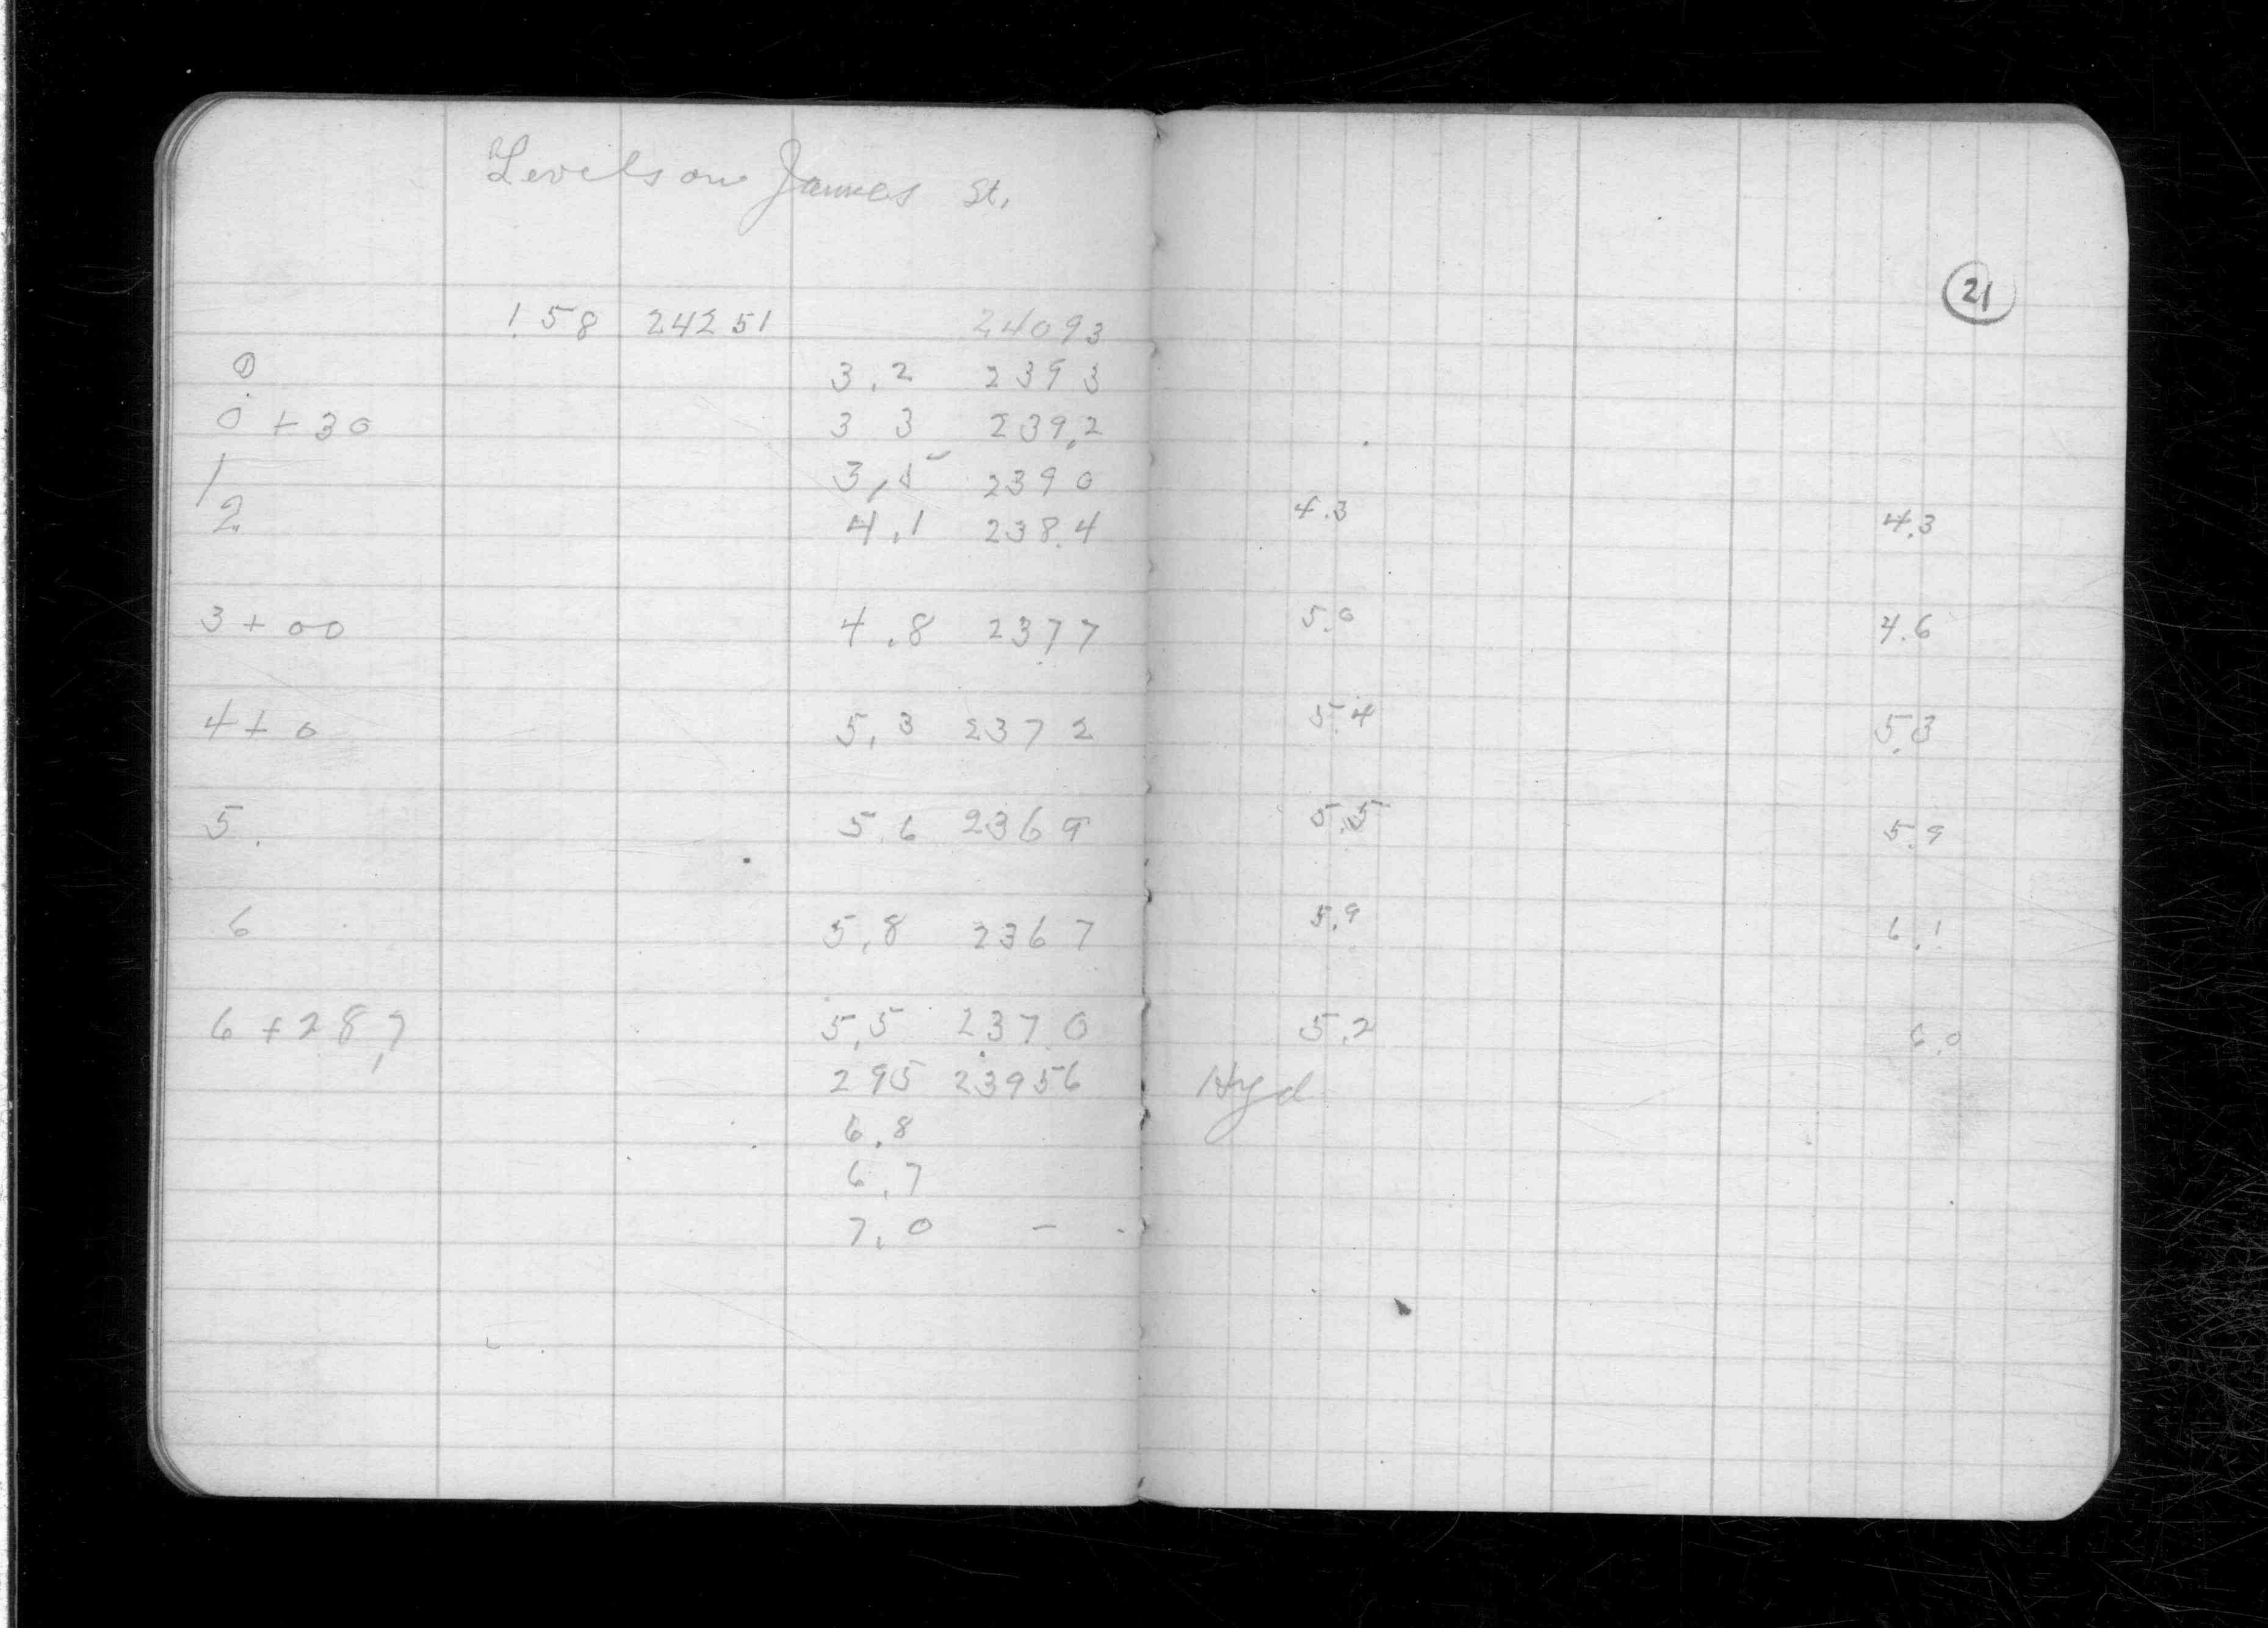 Levels on James St.
21
1.58 242 51 240 93
0 3.2 239 3
0 + 30 3 3 239.2
1 3.5 239 0
2 4.1 238.4 4.3 4.3
3 + 00 4.8 237 7 5.0 4.6
4 + 0 5.3 237 2 5.4 5.3
5. 5.6 236 9 5.5 5.9
6 5.8 236 7 5.9 6.1
6 + 28.7 5.5 237.0 5.2 6.0
2 95 239 56 Hyd
6.8
6.7
7.0 -